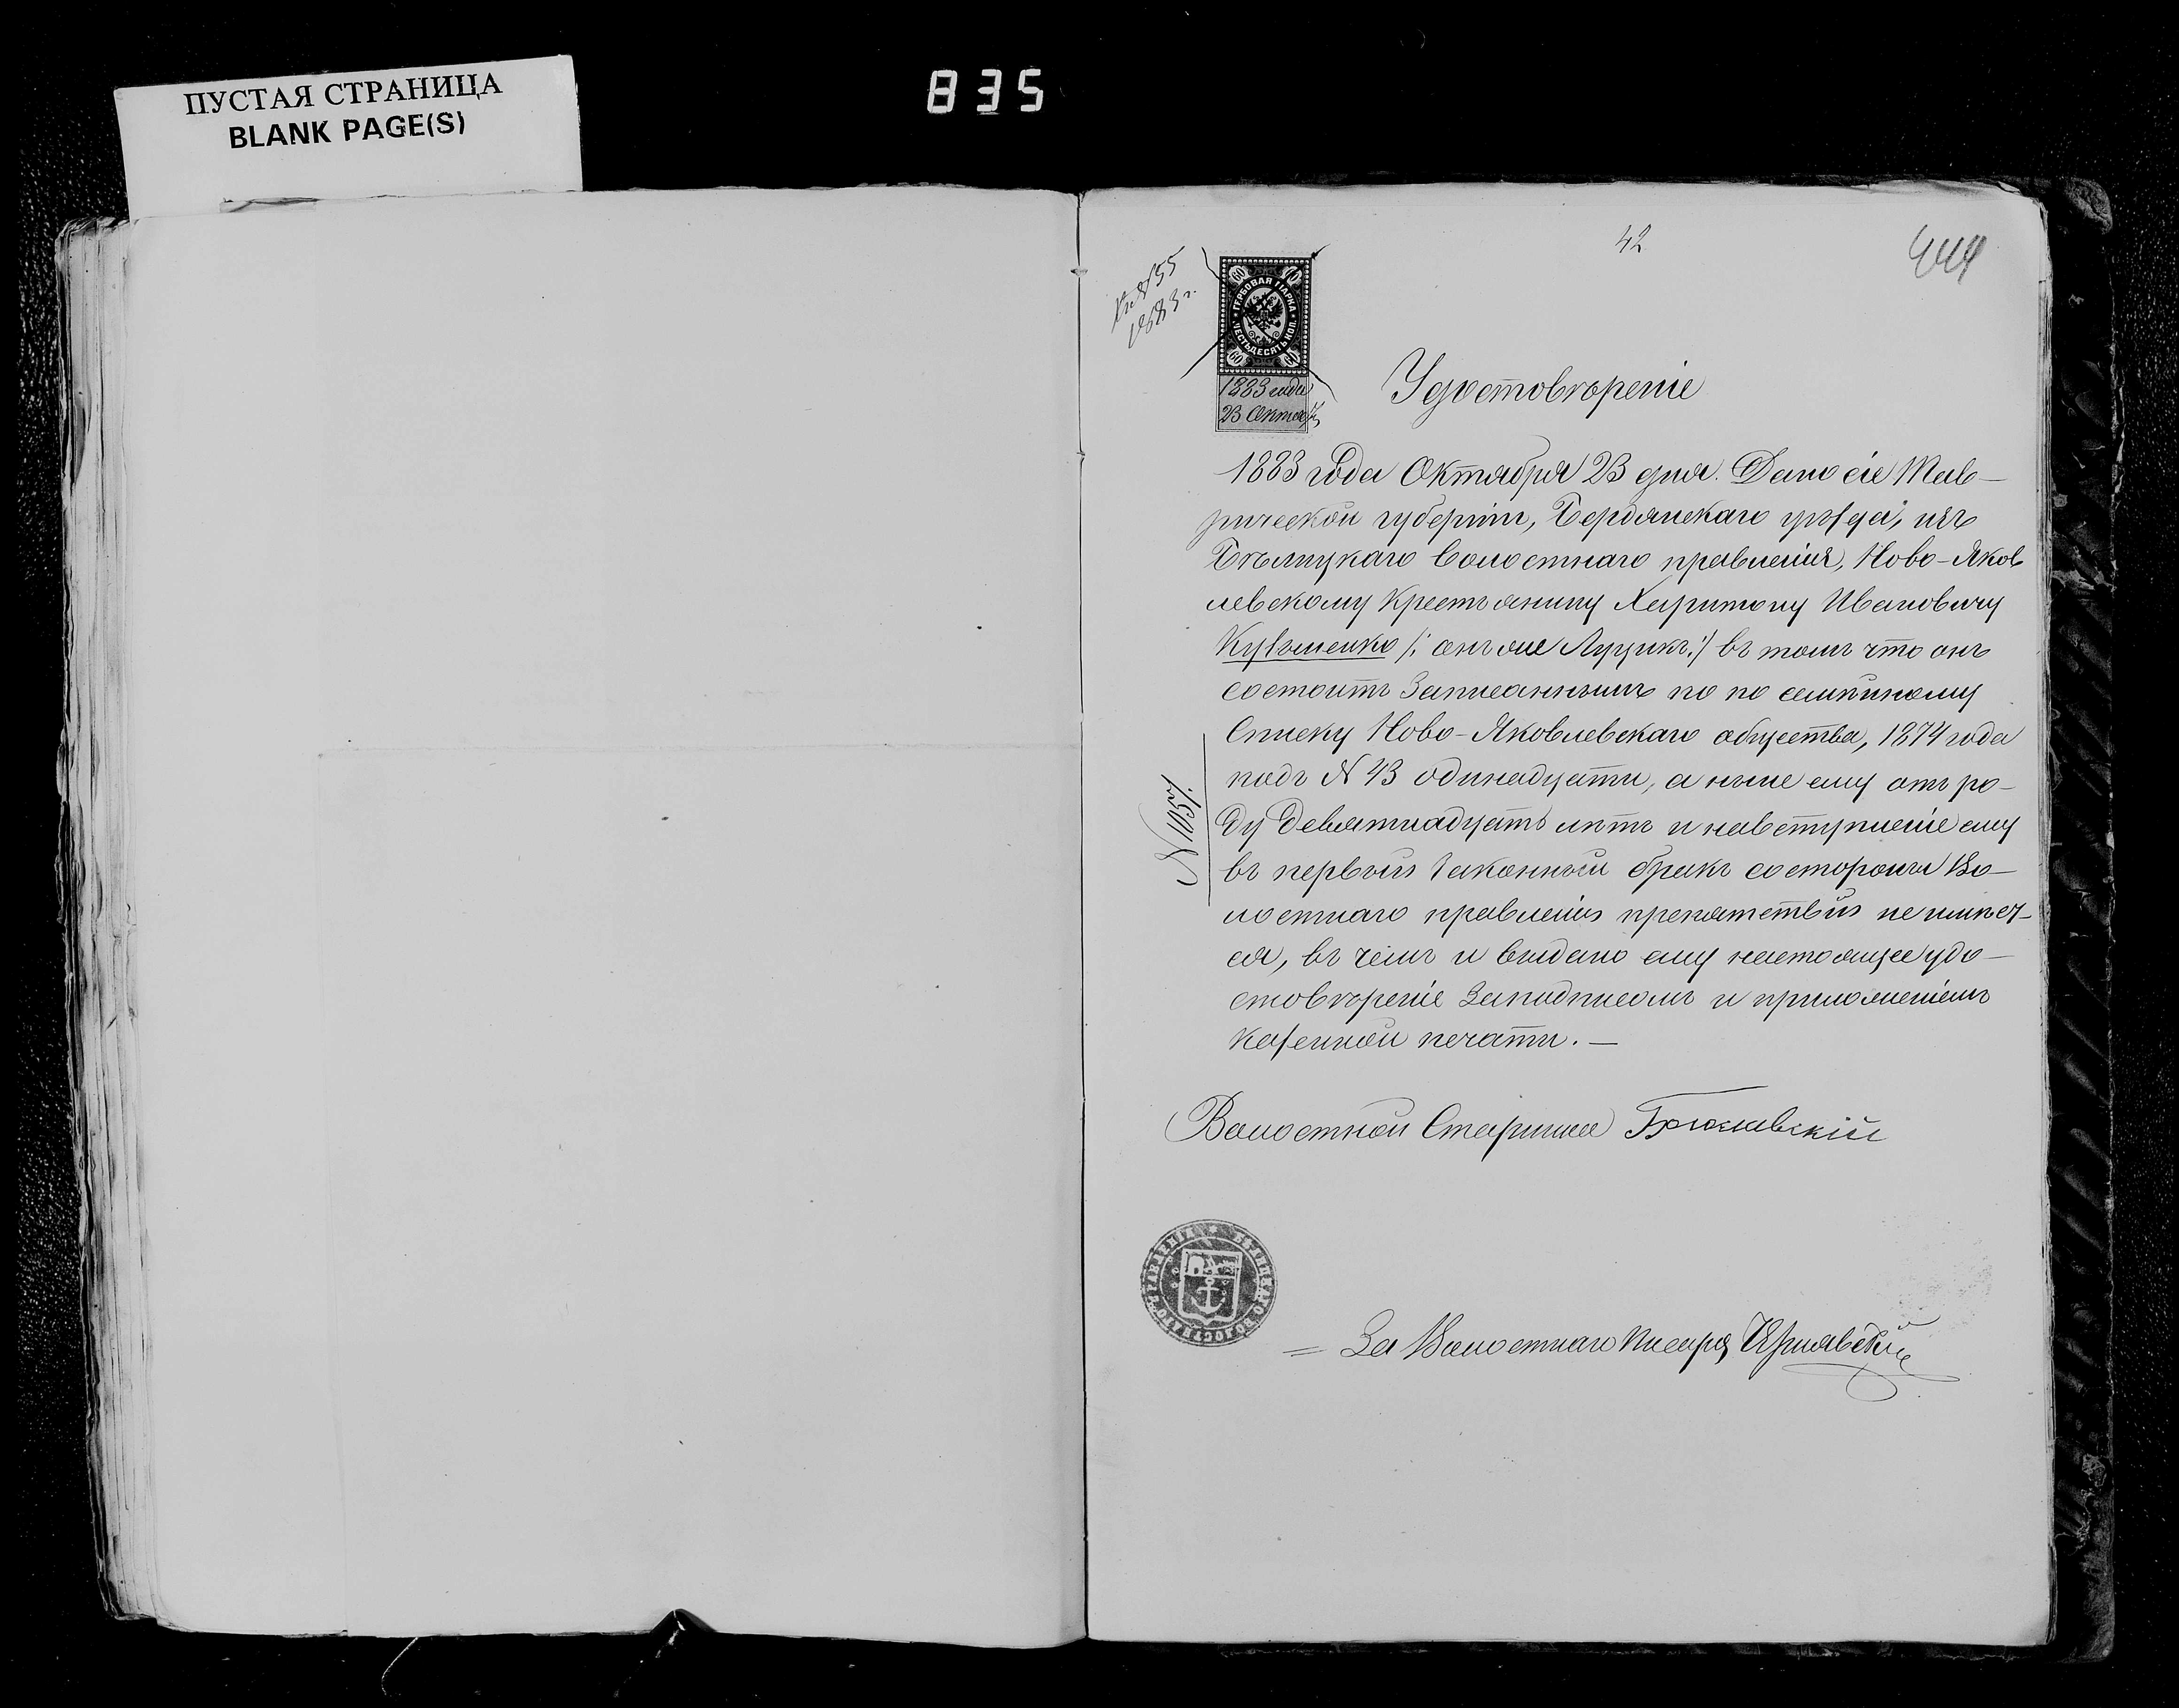 ПУСТАЯ СТРАНИЦА
BLANK PAGE(S)
835
42
444
1883 г.
60
ГЕРБОВАЯ МАРКА
ШЕСТЬДЕСЯТЪ КОП.
60 60
1883 года
23 Октяб
Удостовѣреніе
1883 года Октября 23 дня. Дано сіе Тав-
рической губерніи, Бердянскаго уѣзда, изъ
Бѣлицкаго волостнаго правленія, Ново-Яков
левскому крестьянину Харитону Ивановичу
Кузьменко /: онъ же Луцикъ:/ въ томъ что онъ
состоитъ записаннымъ по по семейному
списку Ново-Яковлевскаго общества, 1874 года
подъ N 43 одинадцати, а ныне ему отъ ро-
ду девятнадцать лѣтъ и навступленіе ему
въ первый законный бракъ состороны Во-
лостнаго правленія препятствій не имѣет-
ся, въ чемъ и выдано ему настоящее удо-
стовѣреніе заподписомъ и приложеніемъ
казенной печати. —
N 1057.
Волостной Старшина
= За Волостнаго Писаря